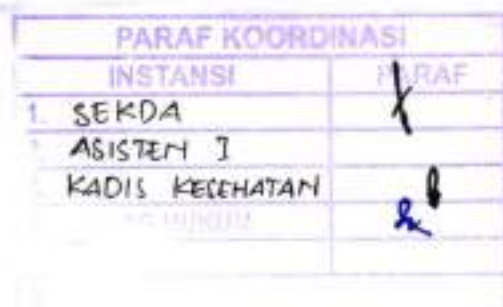 PARAF KOORDINASI
INSTANSI PARAF
1. SEKDA
ASISTEN I
KADIS KESEHATAN
HUKUM